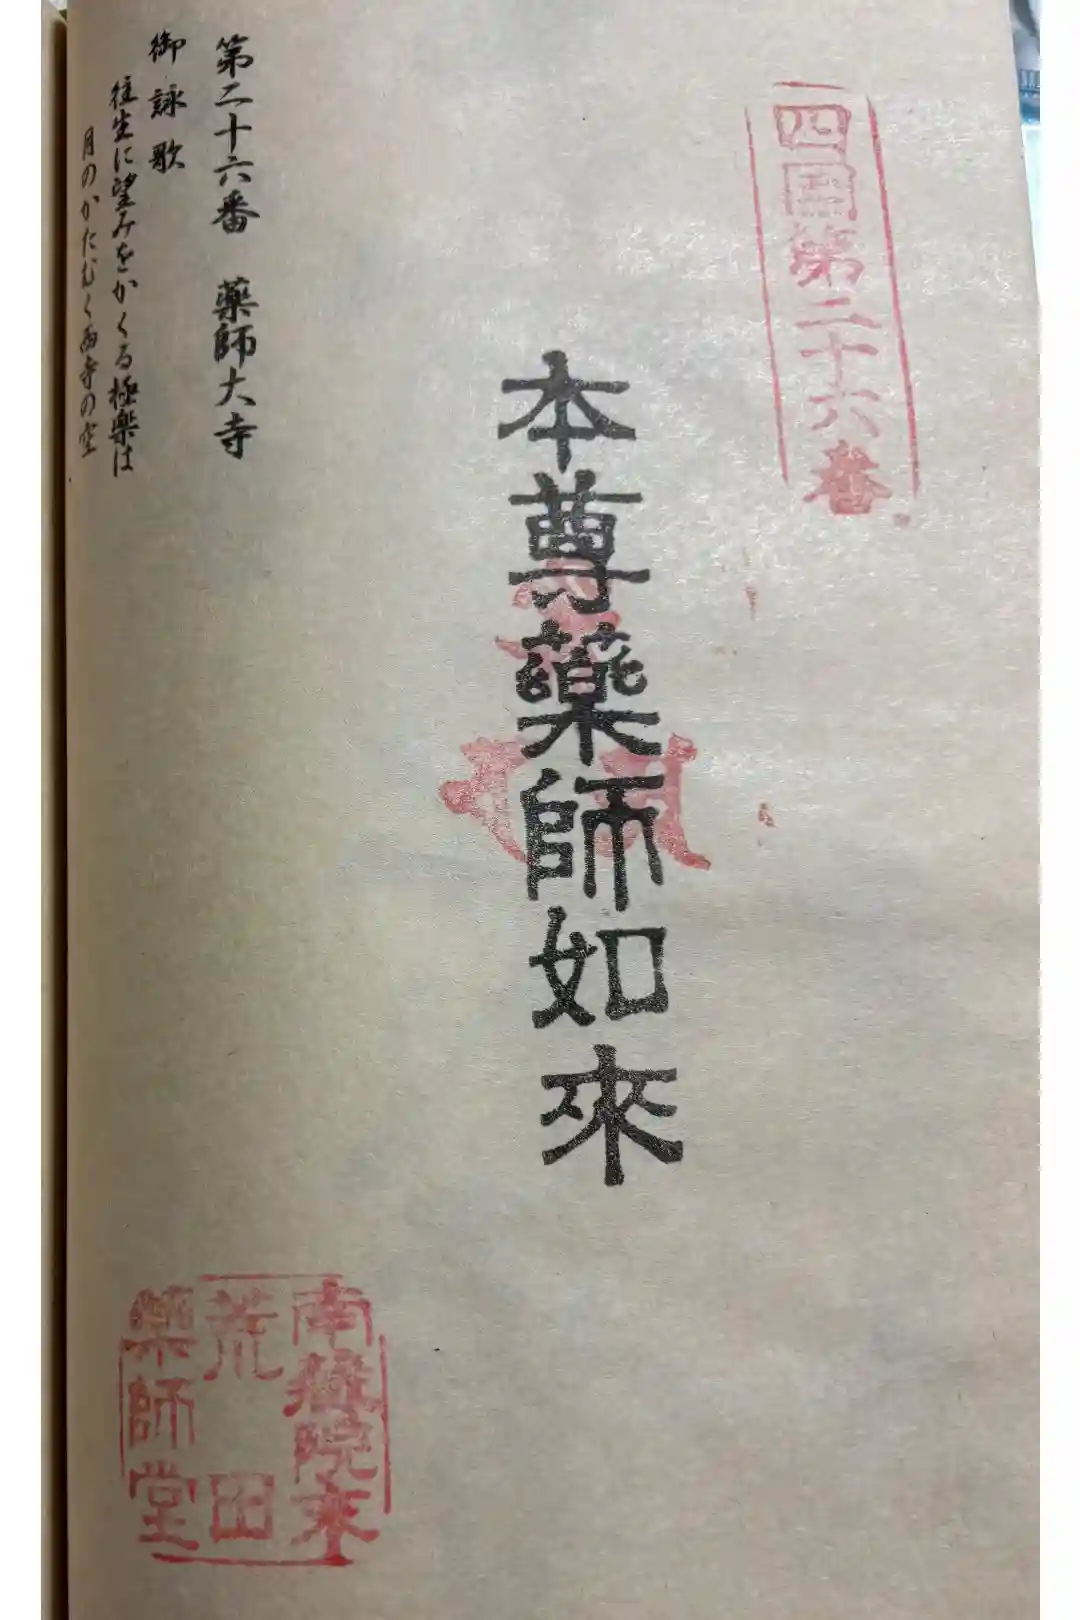 四国第二十六番
本尊薬師如來
第二十六番　薬師大寺
御詠歌
往生に望みをかくる極楽は
月のかたむく西寺の空
南蔵院末
荒田
薬師堂